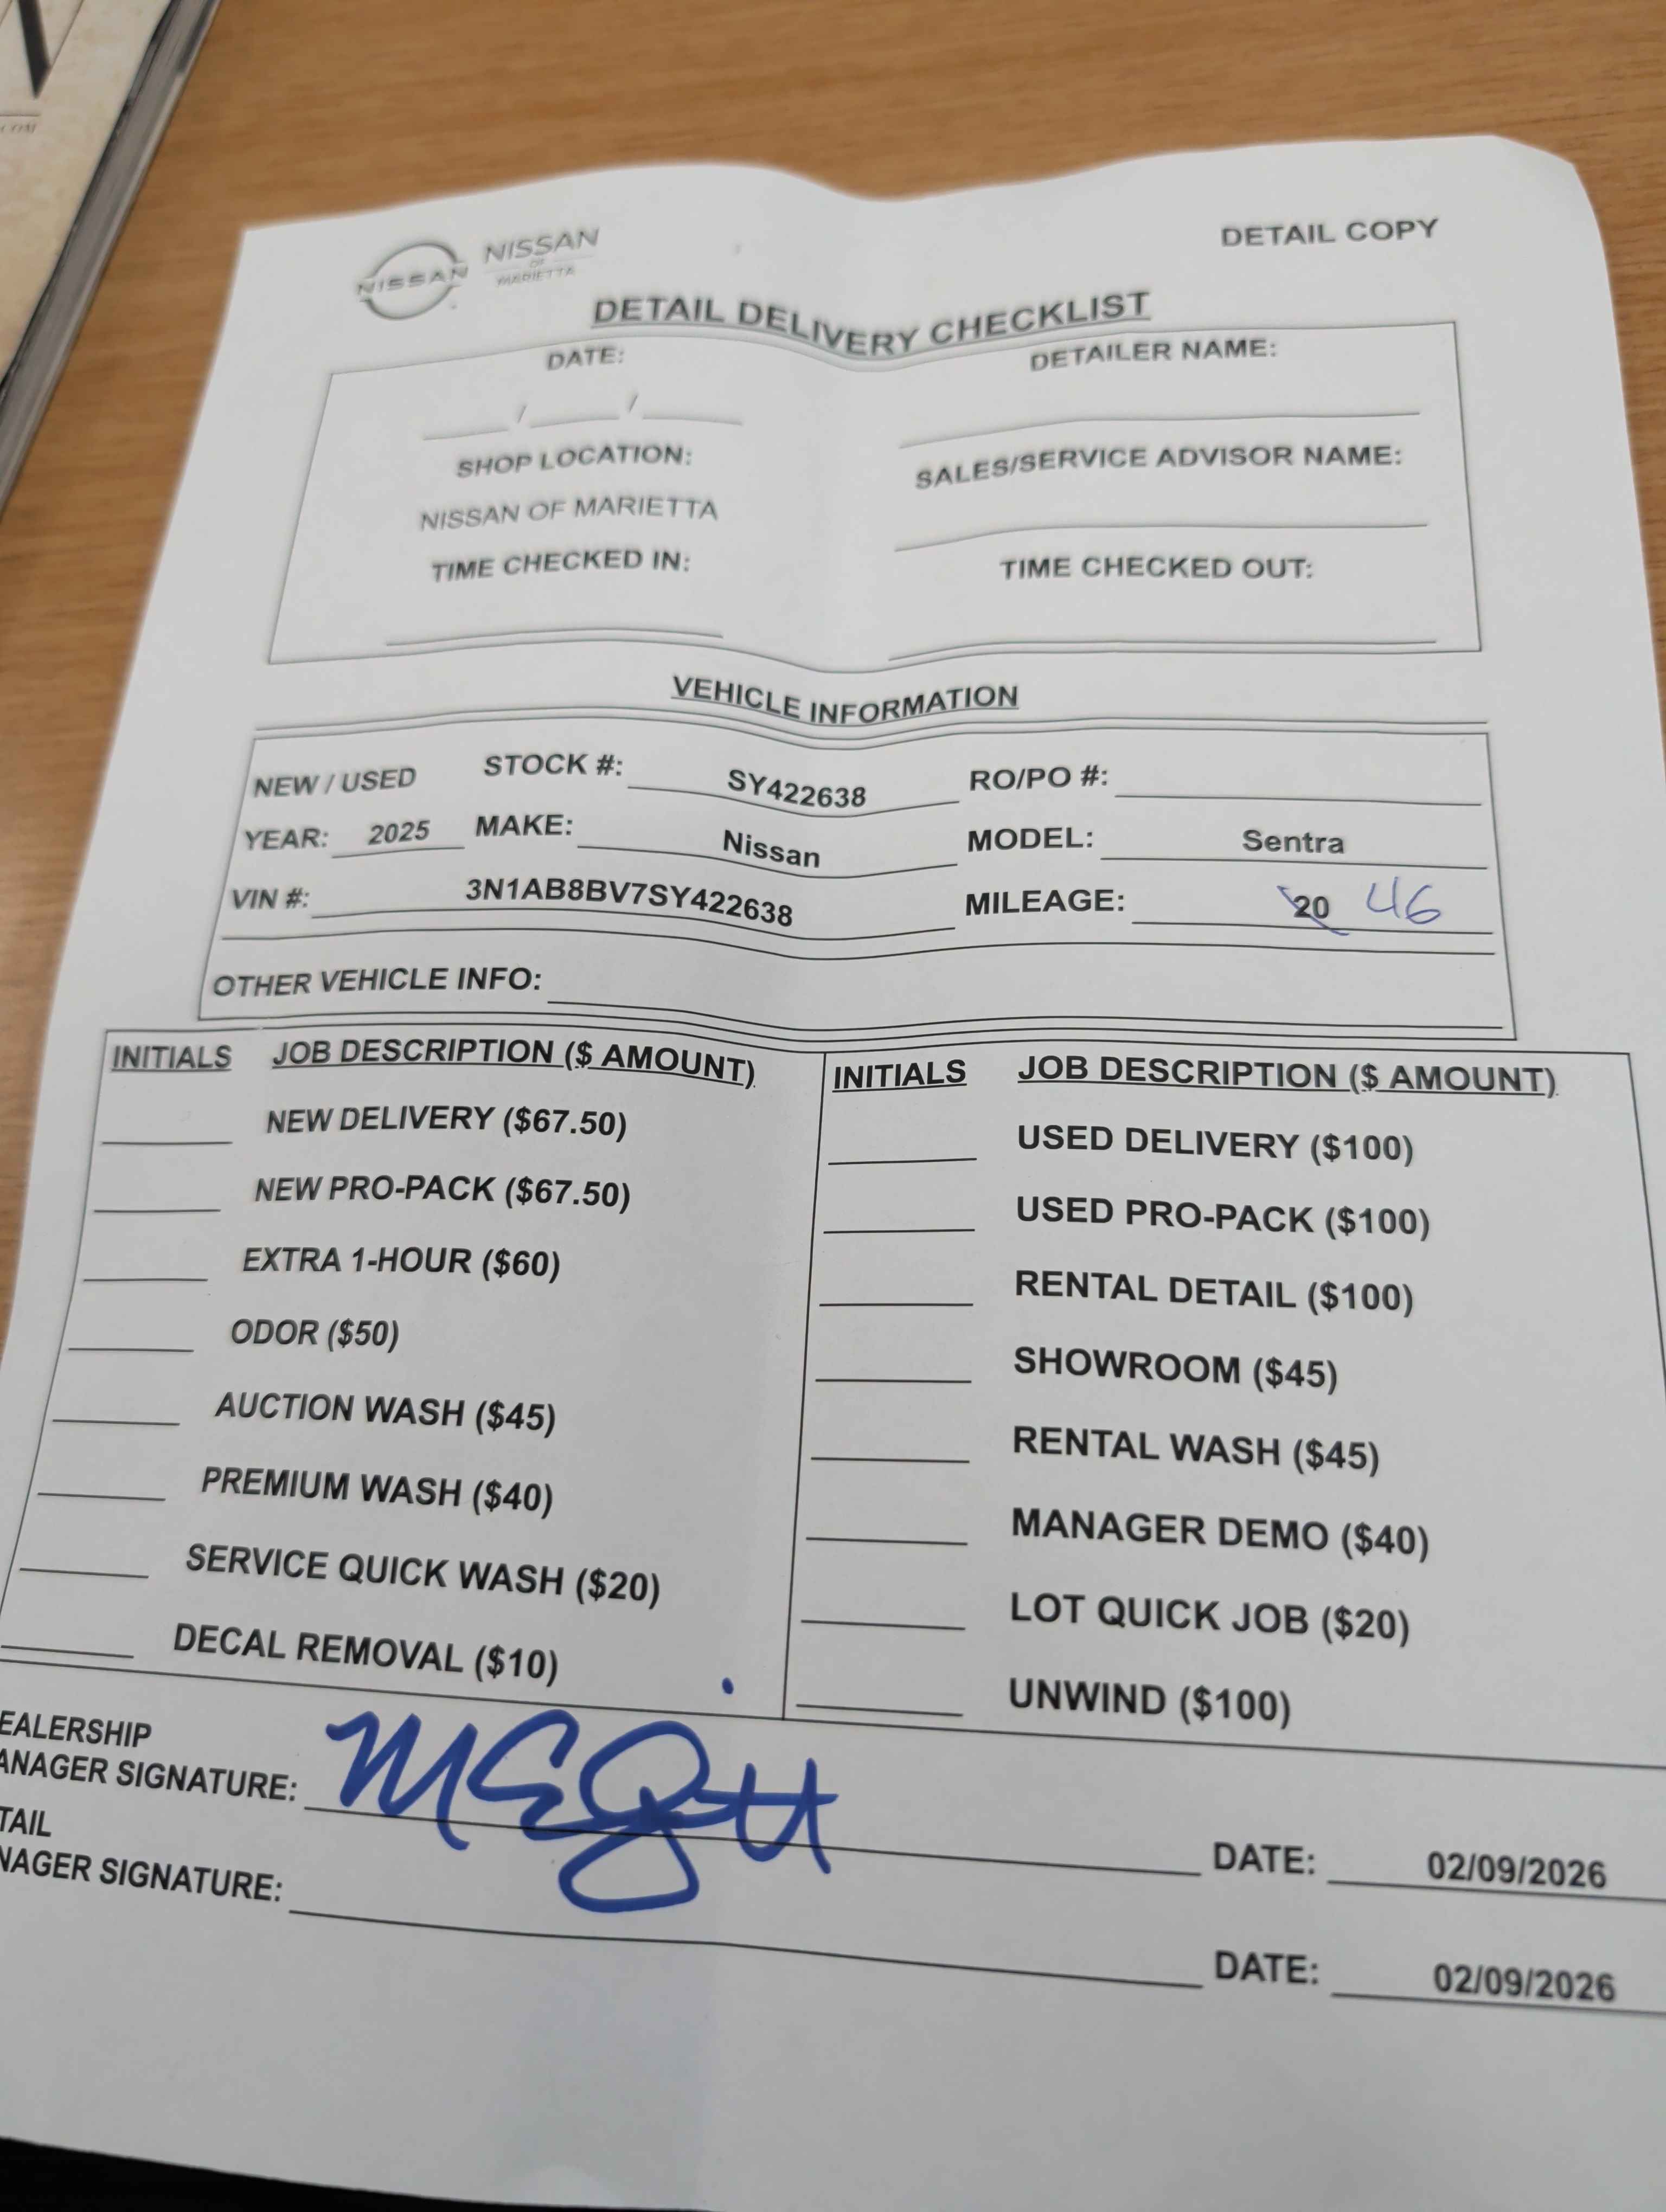 .COM
DETAIL COPY
NISSAN
NISSAN
OF
MARIETTA
DETAIL DELIVERY CHECKLIST
DATE: DETAILER NAME:
/ /
SHOP LOCATION: SALES/SERVICE ADVISOR NAME:
NISSAN OF MARIETTA
TIME CHECKED IN: TIME CHECKED OUT:
VEHICLE INFORMATION
NEW / USED STOCK #: SY422638 RO/PO #:
YEAR: 2025 MAKE: Nissan MODEL: Sentra
VIN #: 3N1AB8BV7SY422638 MILEAGE: 20 46
OTHER VEHICLE INFO:
INITIALS JOB DESCRIPTION ($ AMOUNT) INITIALS JOB DESCRIPTION ($ AMOUNT)
NEW DELIVERY ($67.50) USED DELIVERY ($100)
NEW PRO-PACK ($67.50) USED PRO-PACK ($100)
EXTRA 1-HOUR ($60) RENTAL DETAIL ($100)
ODOR ($50) SHOWROOM ($45)
AUCTION WASH ($45) RENTAL WASH ($45)
PREMIUM WASH ($40) MANAGER DEMO ($40)
SERVICE QUICK WASH ($20) LOT QUICK JOB ($20)
DECAL REMOVAL ($10) UNWIND ($100)
EALERSHIP
ANAGER SIGNATURE: DATE: 02/09/2026
TAIL
NAGER SIGNATURE: DATE: 02/09/2026